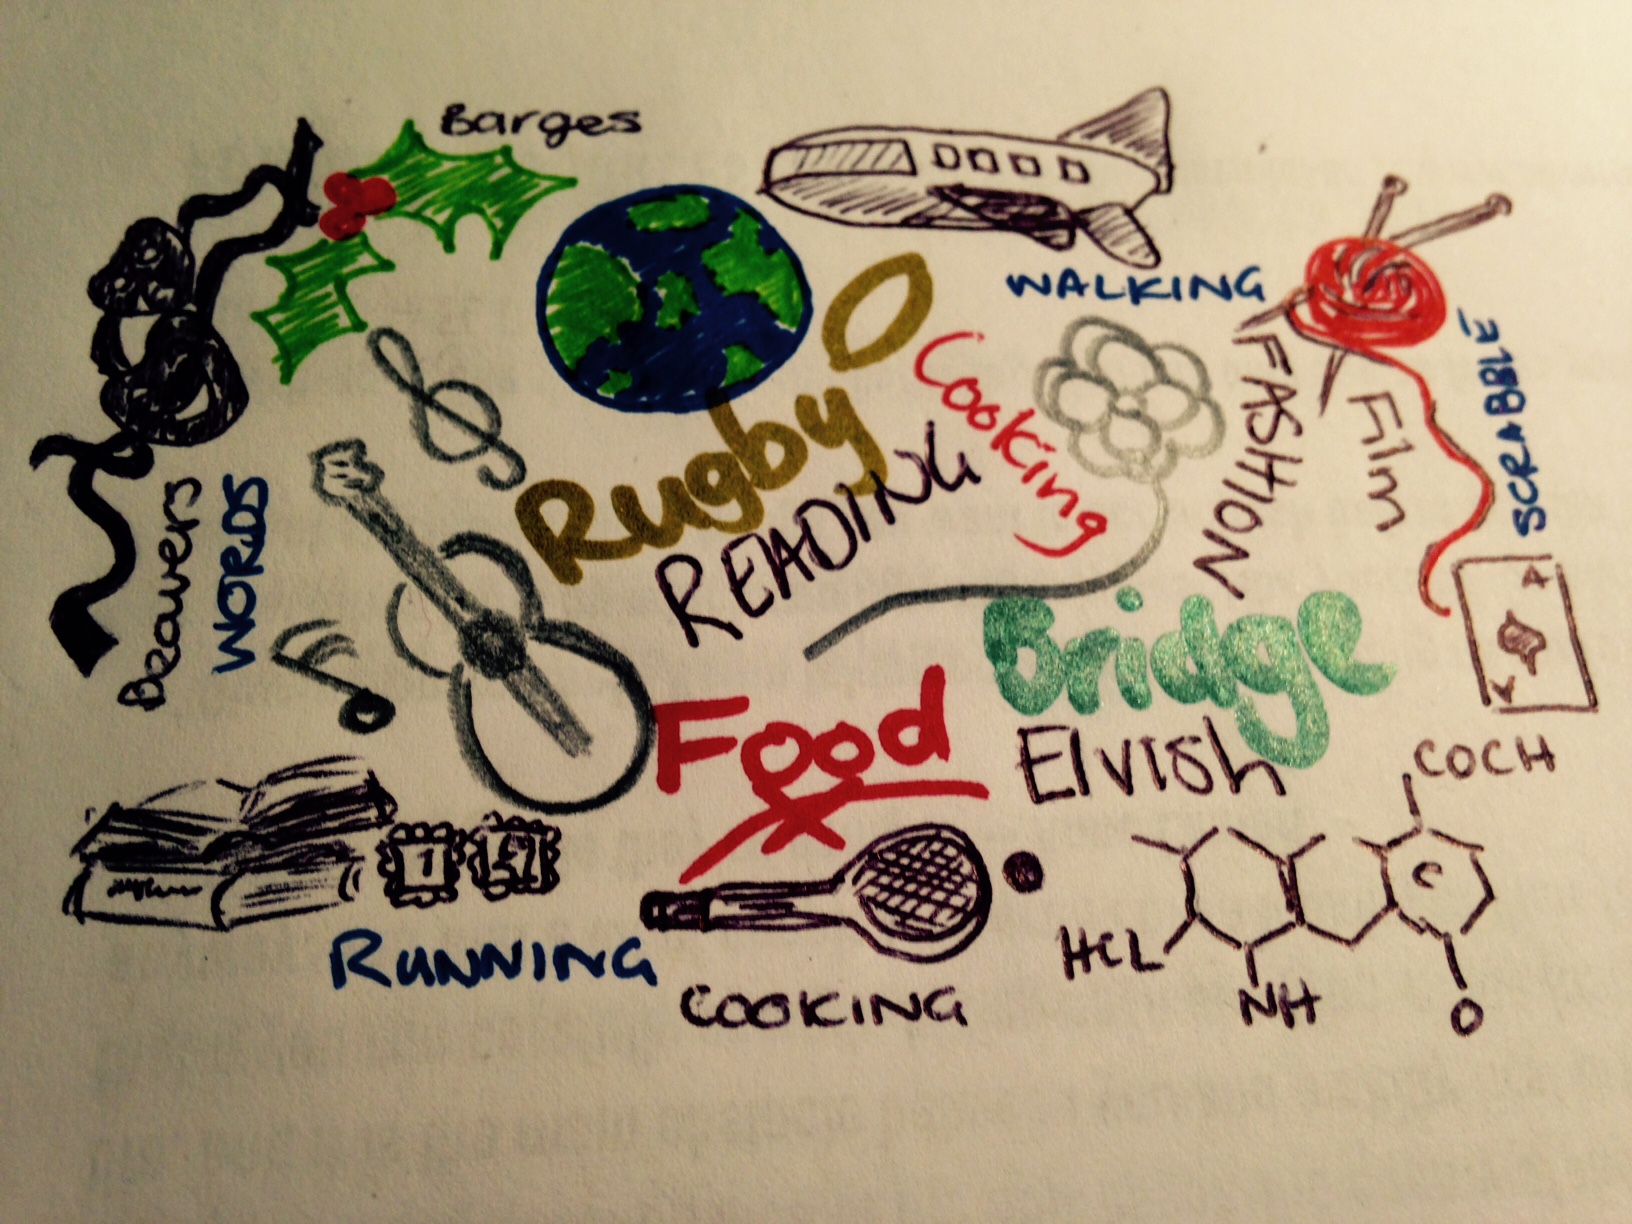 Barges
WALKING
Rugby
Cooking
READING
FASHION
Film
SCRABBLE
WORDS
Bridge
Food
Elvish
COCH
C
HCL
NH
O
1
RUNNING
COOKING
A